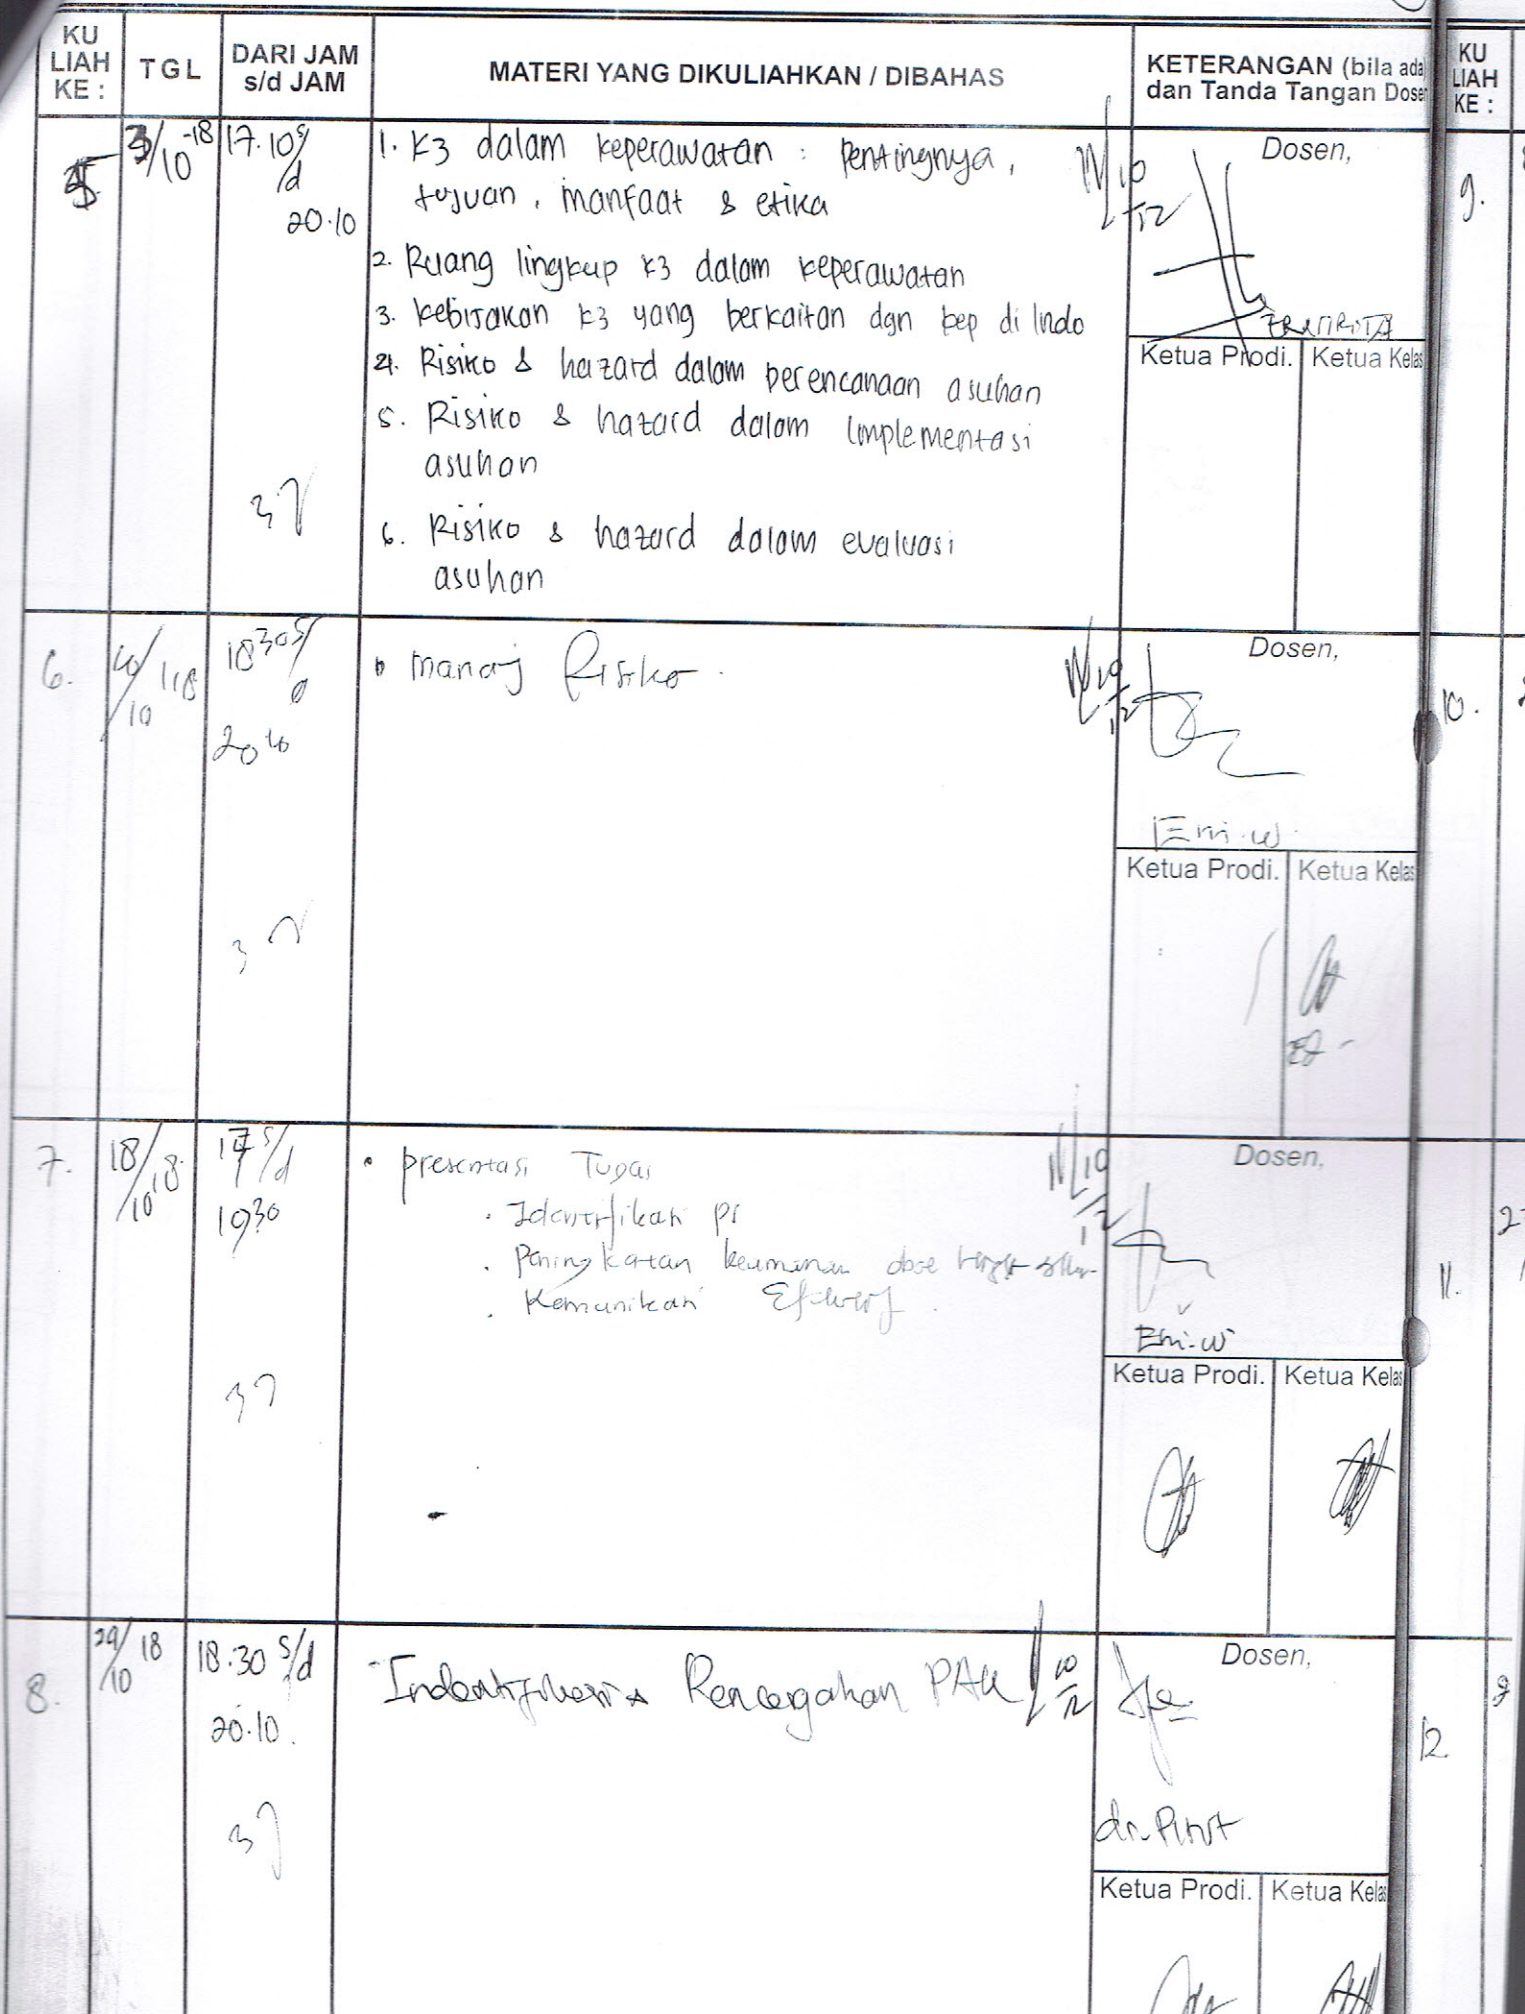 KU LIAH KE :
TGL
DARI JAM s/d JAM
MATERI YANG DIKULIAHKAN / DIBAHAS
KETERANGAN (bila ada
dan Tanda Tangan Dosen
KU LIAH KE :
5
3/10 -18
17.10 s/d
20.10
1. K3 dalam keperawatan : pentingnya,
tujuan, manfaat & etika
2. Ruang lingkup K3 dalam keperawatan
3. kebijakan K3 yang berkaitan dgn kep di Indo
4. Risiko & hazard dalam perencanaan asuhan
5. Risiko & hazard dalam implementasi
asuhan
6. Risiko & hazard dalam evaluasi
asuhan
10/12
Dosen,
Ketua Prodi.
Ketua Kelas
9.
6.
10/18
18 30 s/d
manaj Risiko
10/12
Dosen,
Emi.w
Ketua Prodi.
Ketua Kelas
10.
7.
18/10 18
17 s/d
19 30
presentasi Tugas
Identifikasi
Peningkatan keamanan
Komunikasi Efektif
10/12
Dosen,
Emi.w
Ketua Prodi.
Ketua Kelas
11.
8.
29/10 18
18.30 s/d
20.10.
Indentifikasi & Pencegahan PAK
10/12
Dosen,
Ketua Prodi.
Ketua Kelas
12